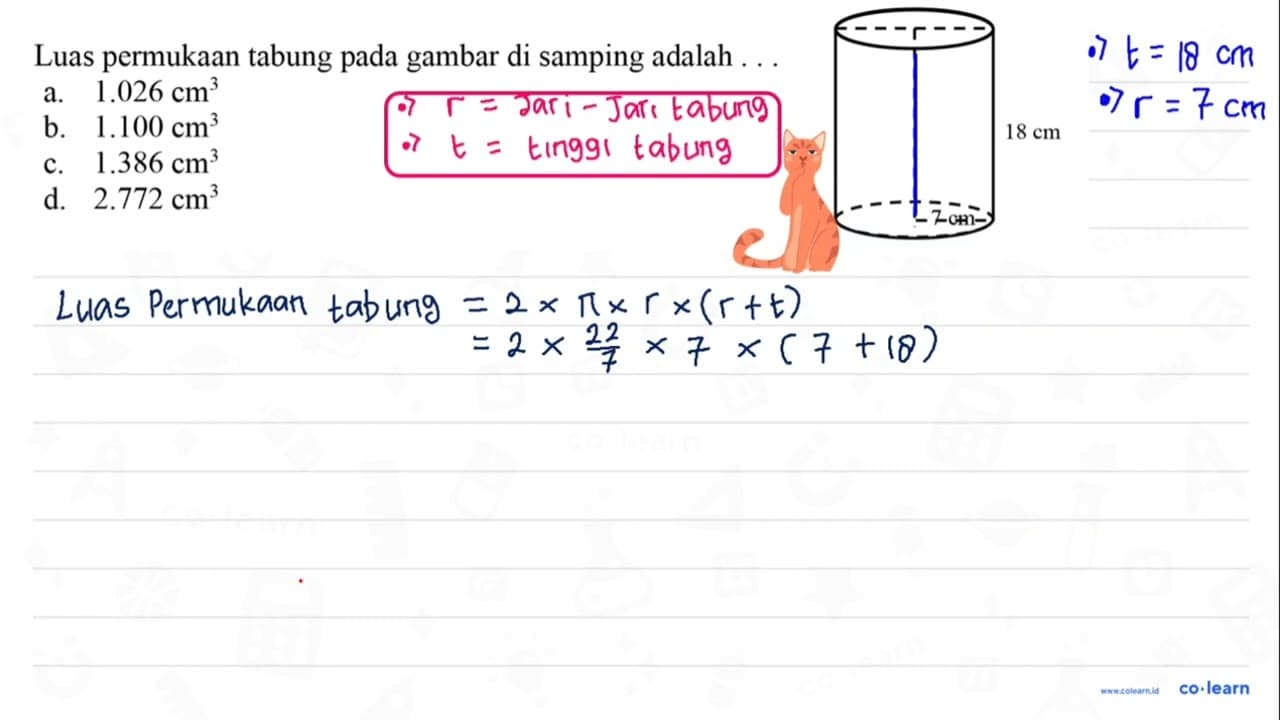 Luas permukaan tabung pada gambar di samping adalah . . .
a. 1.026 cm³
b. 1.100 cm³
c. 1.386 cm³
d. 2.772 cm³
r = Jari - Jari tabung
t = tinggi tabung
18 cm
7 cm
t = 18 cm
r = 7 cm
Luas Permukaan tabung = 2 × π × r × (r + t)
= 2 × 22/7 × 7 × (7 + 18)
co-learn
co-learn
www.colearn.id co·learn